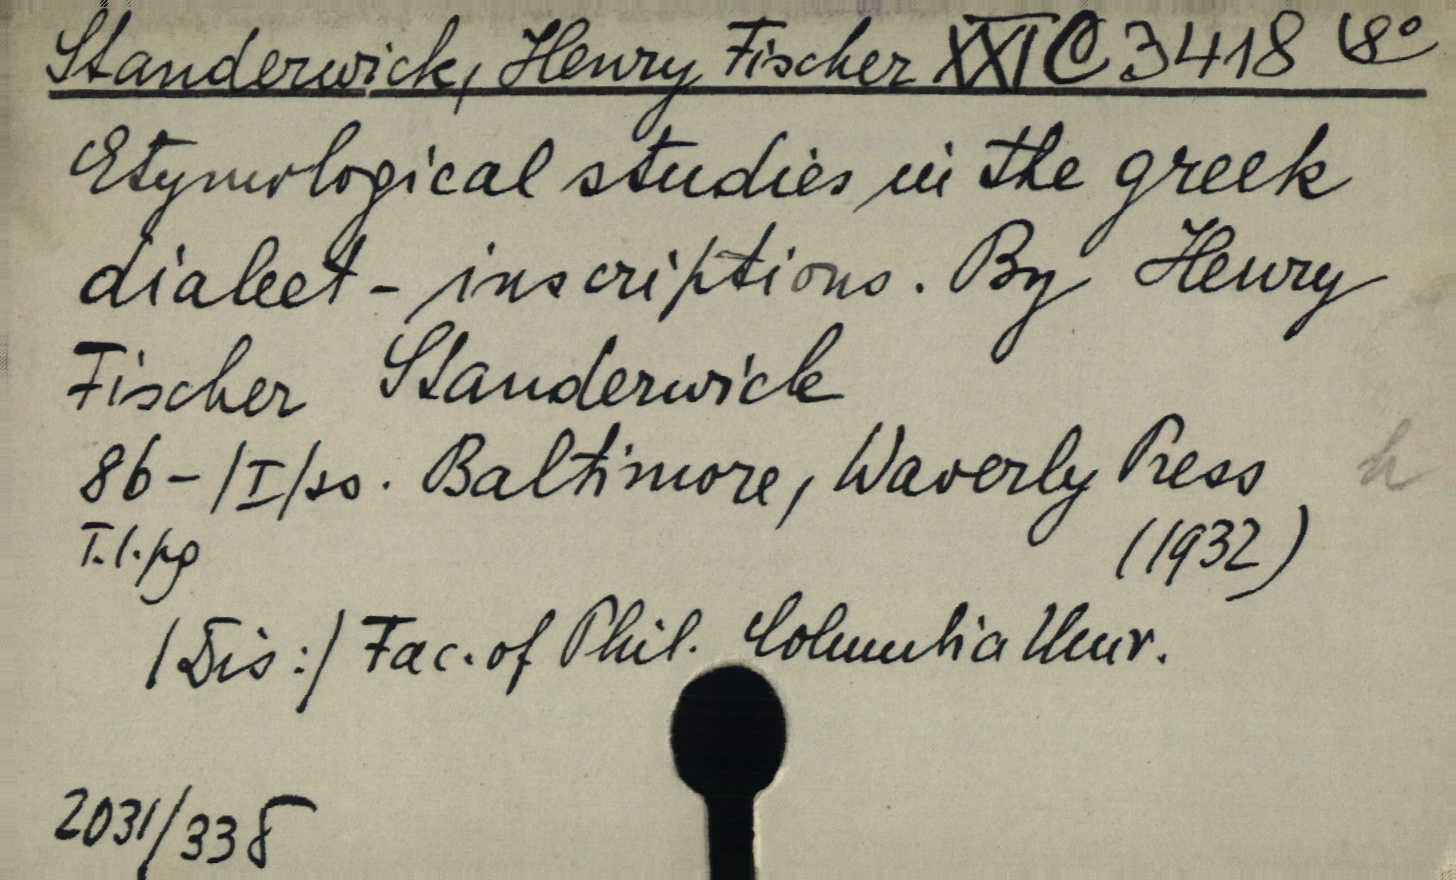 Standerwick, Henry Fischer XXI C 3418 8°
Etymological studies in the greek
dialect - inscriptions. By Henry
Fischer Standerwick
86 - /I/ ss. Baltimore, Waverly Press h
T.l.pg (1932)
/Dis:/ Fac. of Phil. Columbia Univ.
2031/33